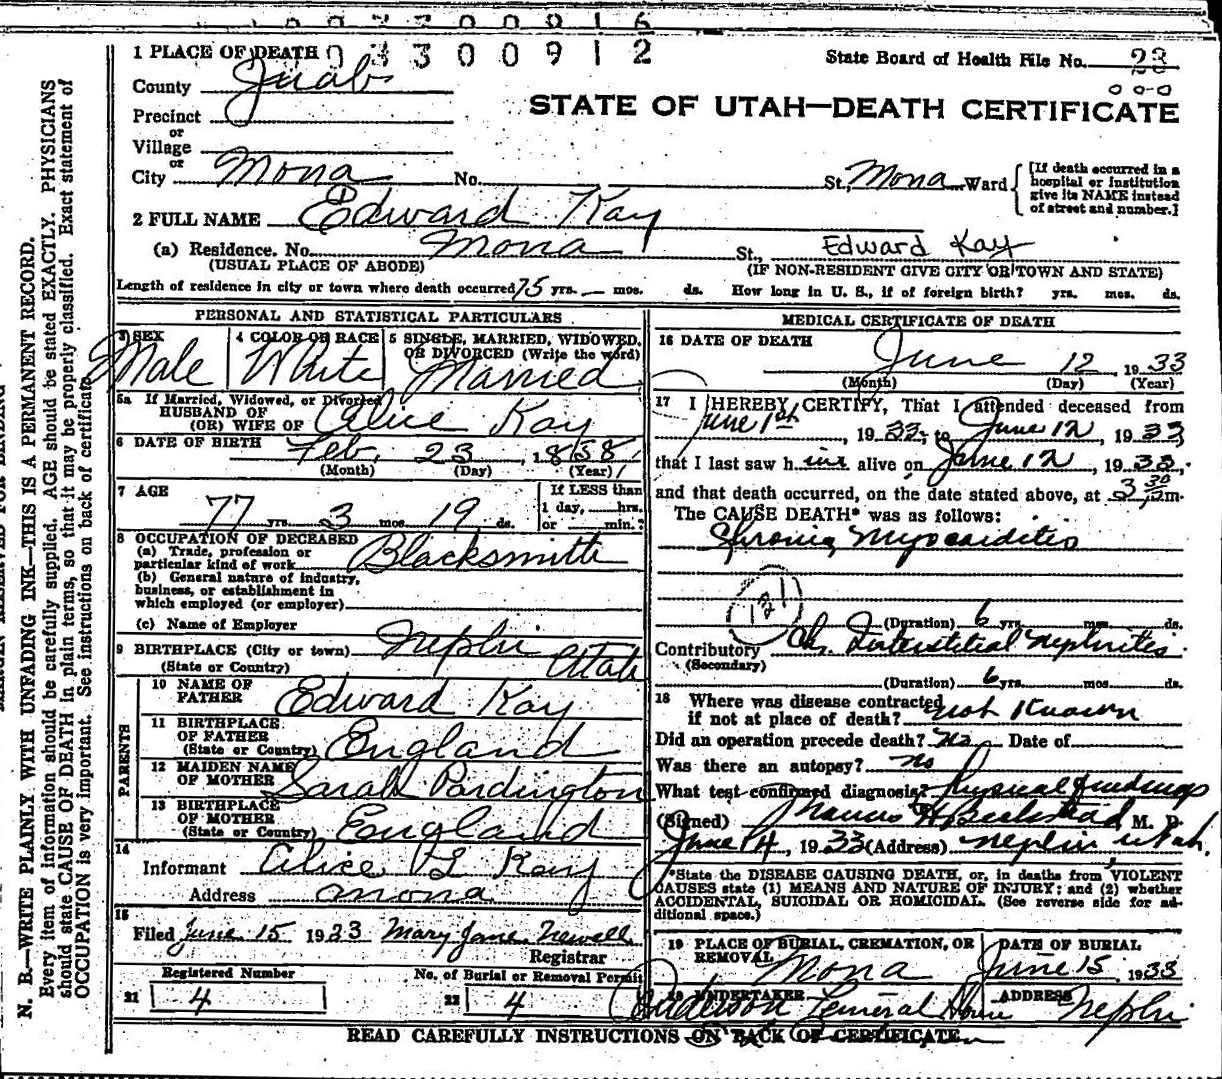 0 3 3 0 0 9 1 2
1 PLACE OF DEATH
State Board of Health File No. 23
County Juab
STATE OF UTAH—DEATH CERTIFICATE
Precinct
or
Village
or
City Mona No. St., Mona Ward
[If death occurred in a
hospital or institution
give its NAME instead
of street and number.]
2 FULL NAME Edward Kay
(a) Residence. No. Mona St., Edward Kay
(USUAL PLACE OF ABODE) (IF NON-RESIDENT GIVE CITY OR TOWN AND STATE)
Length of residence in city or town where death occurred 75 yrs. — mos. ds. How long in U. S., if of foreign birth? yrs. mos. ds.
PERSONAL AND STATISTICAL PARTICULARS
3 SEX 4 COLOR OR RACE 5 SINGLE, MARRIED, WIDOWED,
OR DIVORCED (Write the word)
Male White Married
5a If Married, Widowed, or Divorced
HUSBAND OF
(OR) WIFE OF Alice Kay
6 DATE OF BIRTH Feb. 23, 1858
(Month) (Day) (Year)
7 AGE If LESS than
77 yrs. 3 mos. 19 ds. 1 day, hrs.
or min.
8 OCCUPATION OF DECEASED
(a) Trade, profession or
particular kind of work Blacksmith
(b) General nature of industry,
business, or establishment in
which employed (or employer)
(c) Name of Employer
9 BIRTHPLACE (City or town) Nephi
(State or Country) Utah
PARENTS
10 NAME OF
FATHER Edward Kay
11 BIRTHPLACE
OF FATHER
(State or Country) England
12 MAIDEN NAME
OF MOTHER Sarah Pardington
13 BIRTHPLACE
OF MOTHER
(State or Country) England
14
Informant Alice L Kay
Address Mona
15
Filed June 15 1933 Mary Jane Newell
Registrar
Registered Number No. of Burial or Removal Permit
21 4 22 4
MEDICAL CERTIFICATE OF DEATH
16 DATE OF DEATH
June 12, 1933
(Month) (Day) (Year)
17 I HEREBY CERTIFY, That I attended deceased from
June 1st, 1933, to June 12, 1933,
that I last saw him alive on June 12, 1933,
and that death occurred, on the date stated above, at 3 30 m.
The CAUSE DEATH* was as follows:
Chronic Myocarditis
131
(Duration) 6 yrs. mos. ds.
Contributory Ch. Interstitial Nephritis
(Secondary)
(Duration) 6 yrs. mos. ds.
18 Where was disease contracted
if not at place of death? not Known
Did an operation precede death? No Date of
Was there an autopsy? no
What test confirmed diagnosis? Physical findings
(Signed) M. D.
June 14, 1933 (Address) Nephi, Utah.
*State the DISEASE CAUSING DEATH, or, in deaths from VIOLENT
CAUSES state (1) MEANS AND NATURE OF INJURY; and (2) whether
ACCIDENTAL, SUICIDAL OR HOMICIDAL. (See reverse side for ad-
ditional space.)
19 PLACE OF BURIAL, CREMATION, OR
REMOVAL DATE OF BURIAL
Mona June 15 1933
20 UNDERTAKER ADDRESS
Anderson Funeral Home Nephi
READ CAREFULLY INSTRUCTIONS ON BACK OF CERTIFICATE
N. B.—WRITE PLAINLY WITH UNFADING INK—THIS IS A PERMANENT RECORD.
Every item of information should be carefully supplied. AGE should be stated EXACTLY. PHYSICIANS
should state CAUSE OF DEATH in plain terms, so that it may be properly classified. Exact statement of
OCCUPATION is very important. See instructions on back of certificate.